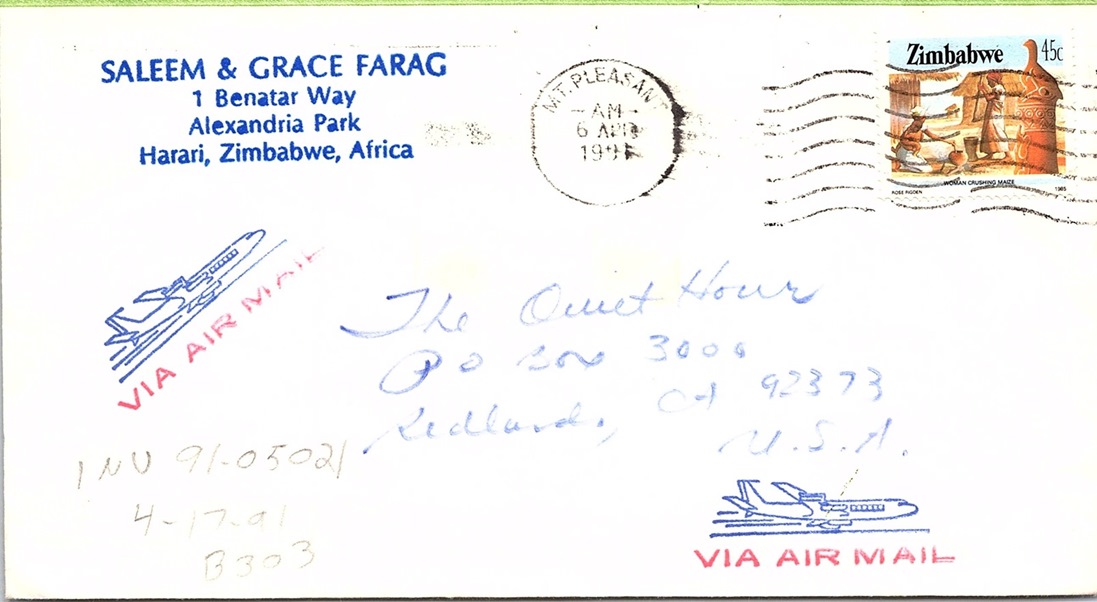 SALEEM & GRACE FARAG
1 Benatar Way
Alexandria Park
Harari, Zimbabwe, Africa
MT. PLEASANT
-AM-
6 APR
1991
Zimbabwe 45c
WOMAN CRUSHING MAIZE
ROSE RIGDEN 1985
VIA AIR MAIL
The Quiet Hour
PO Box 3000
Redlands, CA 92373
U.S.A.
INV 91-05021
4-17-91
B303
VIA AIR MAIL